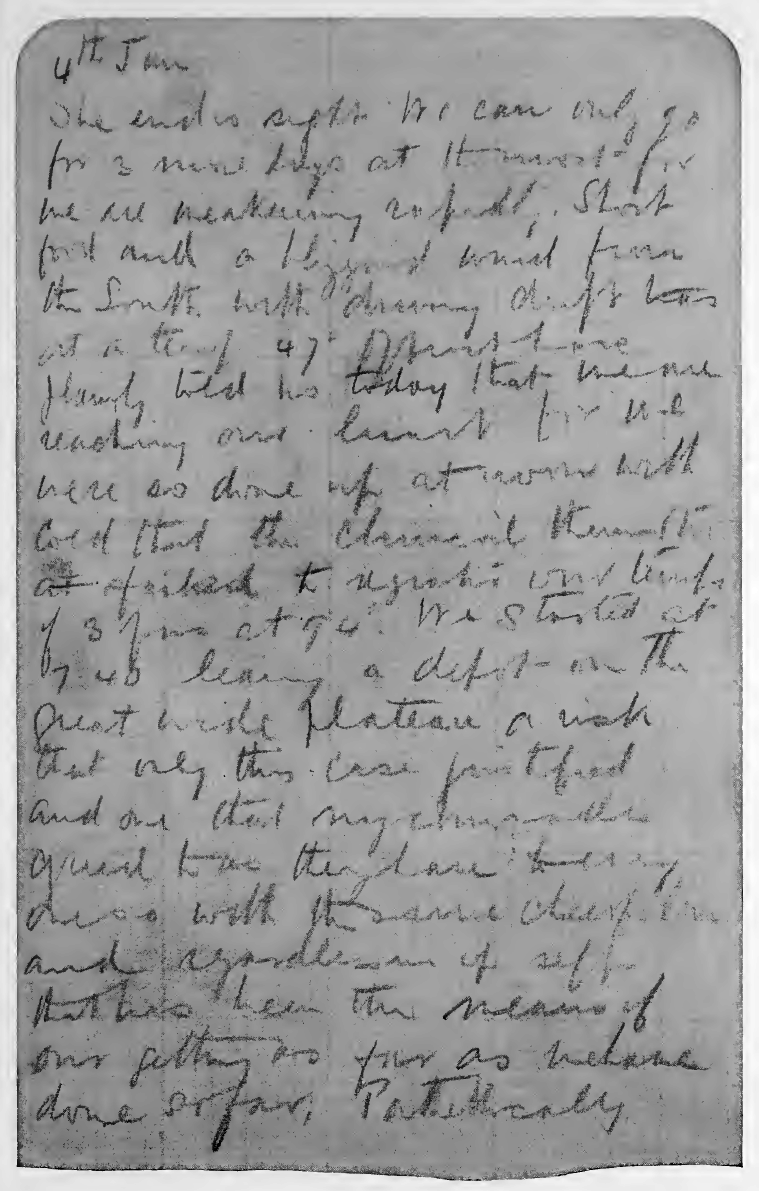 4th Jan
The end is sight. We can only go
for 3 more days at the most for
we are weakening rapidly. Short
food and a blizzard wind from
the South with driving drift
at a temp 47°
plainly told us today that we are
reaching our limit for we
were so done up at noon with
cold that the clinical thermtr
failed to register our temps
of 3 of us at 94°. We started at
7.40 leaving a depot on the
great wide plateau a risk
that only this case justified
and one that my comrades
agreed to as they have to every
one so with the same cheerfulness
and regardlessness of self
that has been the means of
our getting as far as we have
done so far. Pathetically